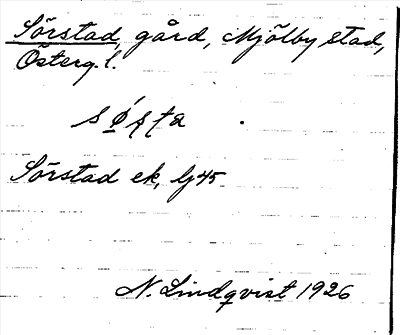 Sörstad, gård, Mjölby stad,
Österg. l.
Sörstad ek, lj 45
N. Lindqvist 1926